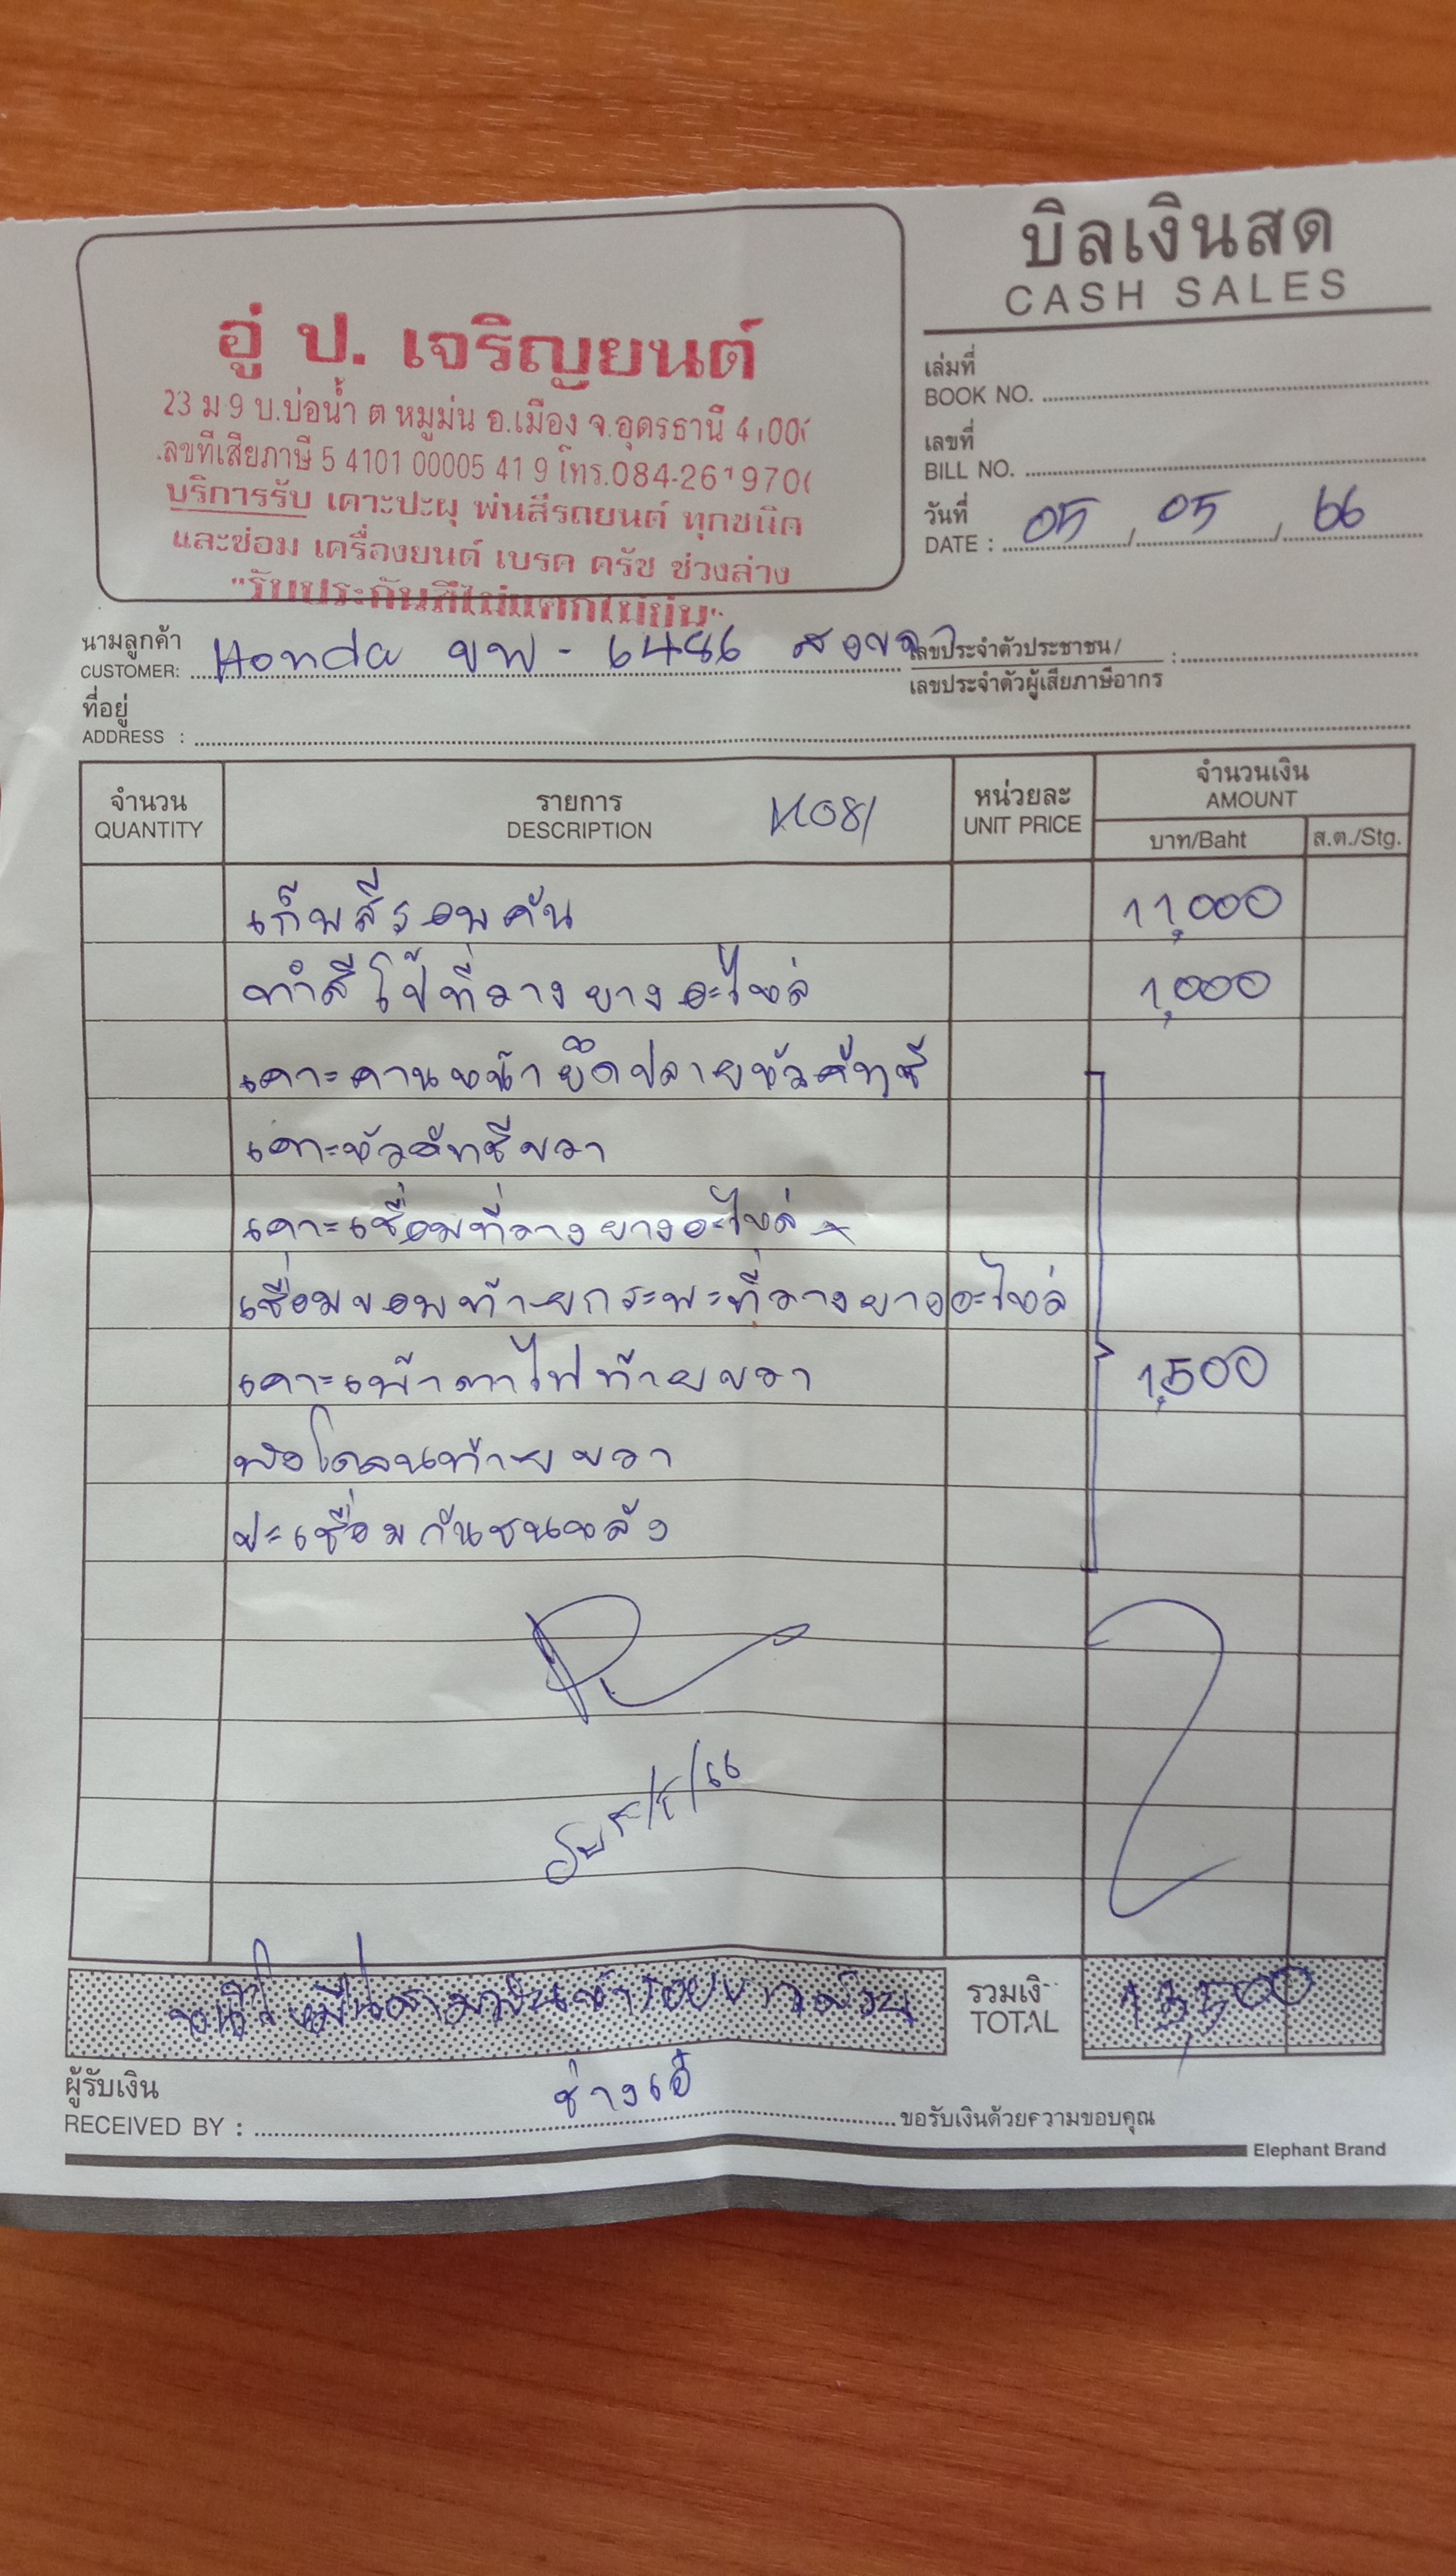 บิลเงินสด
CASH SALES
อู่ ป. เจริญยนต์
23 ม 9 บ.บ่อน้ำ ต หมูม่น อ.เมือง จ.อุดรธานี
ลขทีเสียภาษี 5 4101 00005 41 9 โทร.084-261970
บริการรับ เคาะปะผุ พ่นสีรถยนต์ ทุกชนิด
และซ่อม เครื่องยนต์ เบรค ครัช ช่วงล่าง
"รับประกันสีไม่แตกไม่ย่น"
เล่มที่
BOOK NO.
เลขที่
BILL NO.
วันที่
DATE : 05 / 05 / 66
นามลูกค้า
CUSTOMER: Honda ขพ - 6486
เลขประจำตัวประชาชน/ :
เลขประจำตัวผู้เสียภาษีอากร
ที่อยู่
ADDRESS :
จำนวน
QUANTITY
รายการ
DESCRIPTION
หน่วยละ
UNIT PRICE
จำนวนเงิน
AMOUNT
บาท/Baht ส.ต./Stg.
เก็บสีรอบคัน 11,000
ทำสี โป๊ที่วางยางอะไหล่ 1,000
เคาะคานหน้ายึดปลายหัวคัทซี
เคาะหัวคัทซีขวา
เคาะเชื่อมที่วางยางอะไหล่
เชื่อมขอบท้ายกระบะที่วางยางอะไหล่
เคาะเบ้าตาไฟท้ายขวา 1,500
บังโคลนท้ายขวา
ปะเชื่อมกันชนหลัง
หนึ่งหมื่นสามพันห้าร้อยบาทถ้วน
รวมเงิ
TOTAL 13,500
ผู้รับเงิน
RECEIVED BY : ช่างเอ๋ ขอรับเงินด้วยความขอบคุณ
Elephant Brand